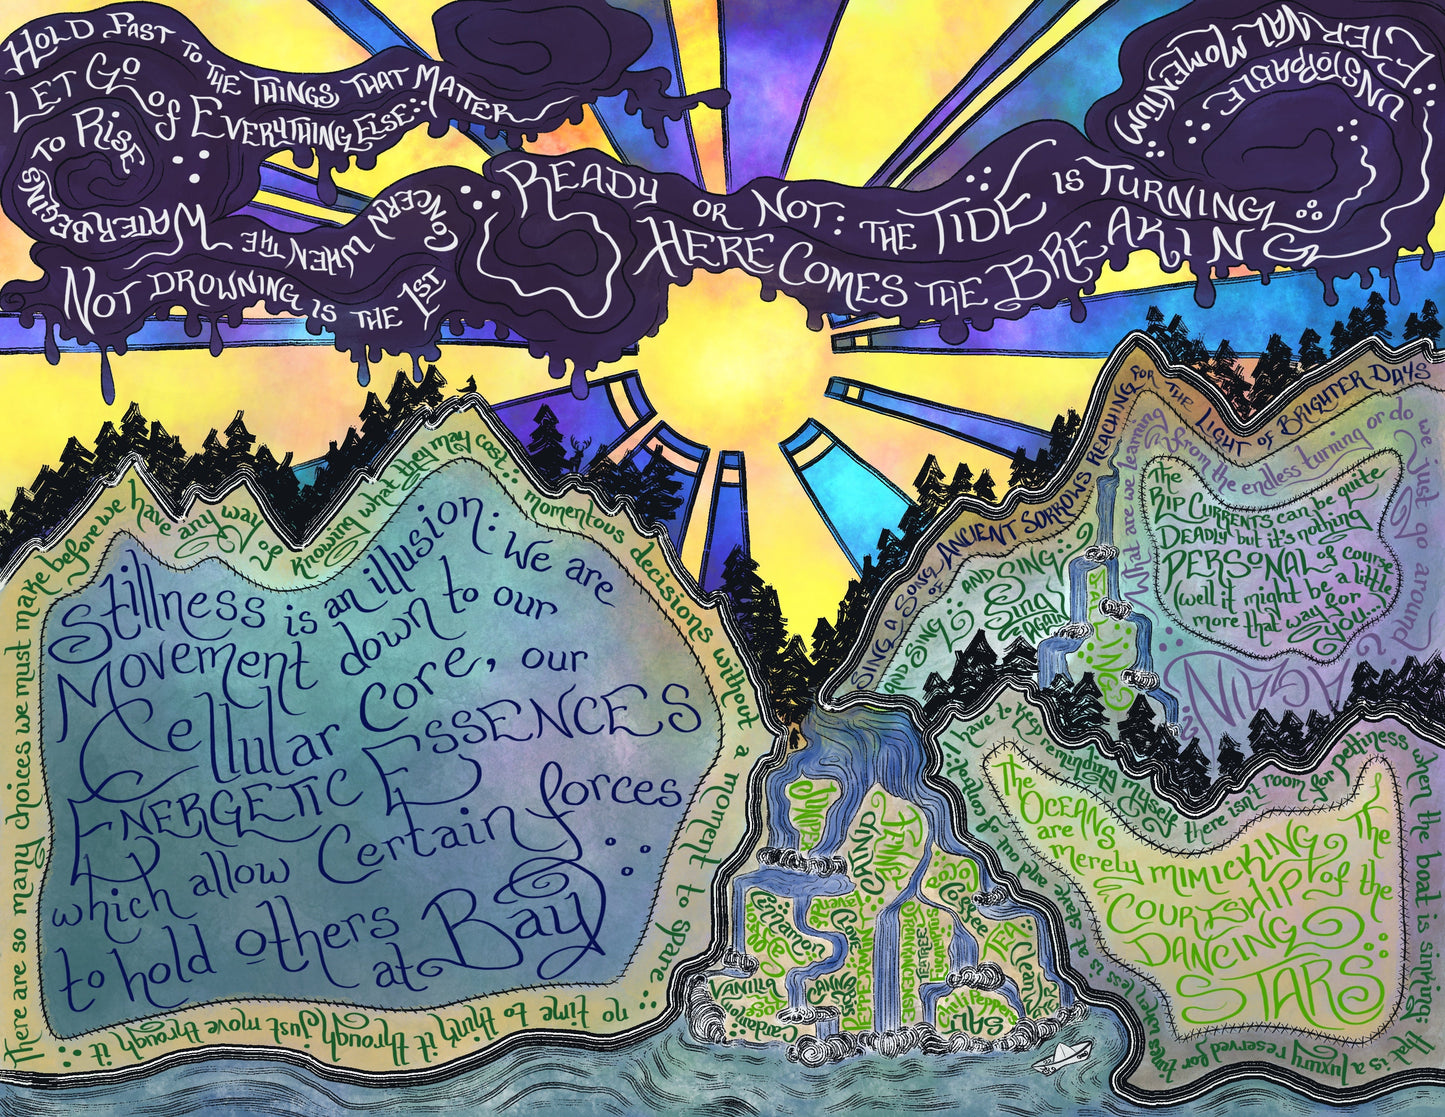 HOLD FAST TO THE THINGS THAT MATTER
LET GO OF EVERYTHING ELSE:
NOT DROWNING IS THE 1ST
CONCERN WHEN THE
WATER BEGINS TO RISE
READY OR NOT: THE TIDE IS TURNING
HERE COMES THE BREAKING
UNSTOPPABLE
ETERNAL MOMENTUM
There are so many choices we must make before we have any way of knowing what they may cost: momentous decisions without a moment to spare
no time to think it through just move through it
Stillness is an illusion: we are
Movement down to our
Cellular Core, our
ENERGETIC ESSENCES
which allow Certain forces
to hold others
at Bay
SING A SONG OF ANCIENT SORROWS REACHING FOR THE LIGHT OF BRIGHTER DAYS
AND SING AND SING
Sing
AGAIN
What are we learning from the endless turning or do we just go around
AGAIN?
The
RIP CURRENTS can be quite
DEADLY but it's nothing
PERSONAL of course
(well it might be a little
more that way for
you...
I have to keep reminding myself there isn't room for pettiness when the boat is sinking: that is a luxury reserved for times when less is at stake and out of control:
The OCEANS
are
merely MIMICKING The
COURTSHIP of the
DANCING
STARS
JUNIPER
CATNIP
TEA
VANILLA
Rose
Cardamom
Cinnamon
Clove
CANNABIS
PEPPERMINT
FRANKINCENSE
Chili Pepper
SALT